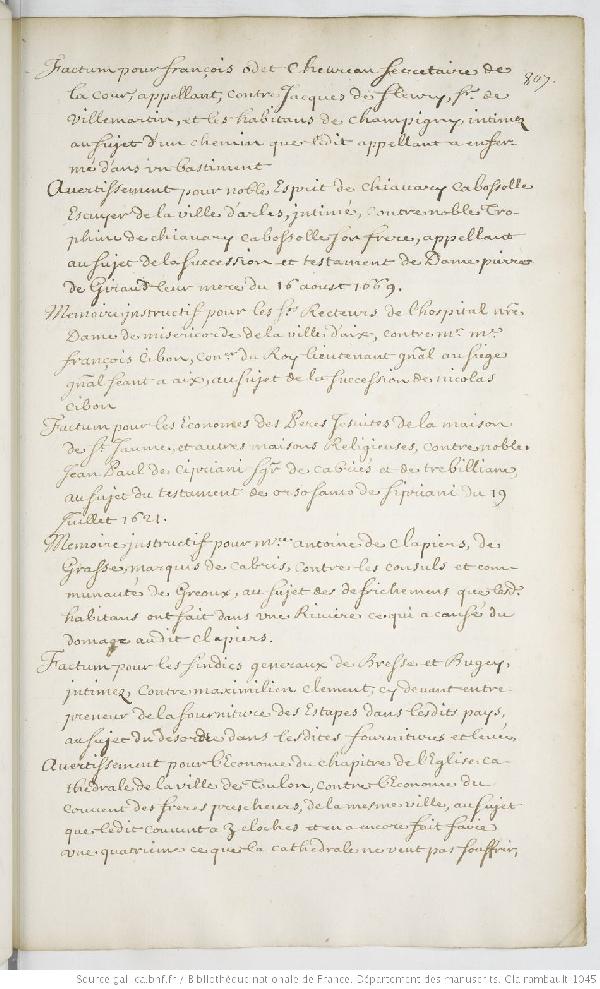 807.
Factum pour françois odet Chevreau secretaire de
la cour, appellant, contre Jacques de fleury, sr. de
villemartin, et les habitans de champigny, intimez
au sujet d'un chemin que ledit appellant a enfer-
mé dans un bastiment
Avertissement pour noble Esprit de Chiavary Cabossolle
Escuyer de la ville d'arles, intimé, contre noble Tro-
phime de chiavary cabossolle son frere, appellant
au sujet de la succession et testament de Dame pierre
de Giraud leur mere du 16 aoust 1669.
Memoire instructif pour les srs. Recteurs de l'hospital nre.
Dame de misericorde de la ville d'aix, contre mr. me.
françois Cibon, coner. du Roy lieutenant gnal au siege
gnal seant a aix, au sujet de la succession de nicolas
Cibon
Factum pour les Economes des Peres Jesuites de la maison
de St. Jaume, et autres maisons Religieuses, contre noble
Jean Paul de Cipriani sgr. de cabriés et de trebilliane,
au sujet du testament de orsosanto de Sipriani du 19
Juillet 1621.
Memoire instructif pour mre. antoine de Clapiers, de
Grasse, marquis de Cabris, contre les consuls et com-
munauté de Greoux, au sujet des defrichemens que lesd.
habitans ont fait dans une Riviere ce qui a causé du
domage audit Clapiers.
Factum pour les sindics generaux de Bresse et Bugey,
intimez, contre maximilien Clement, cy devant entre-
preneur de la fourniture des Estapes dans lesdits pays,
au sujet du desordre dans lesdites fournitures et levée,
Avertissement pour l'Econome du chapitre de l'Eglise ca-
thedrale de la ville de Toulon, contre l'Econome du
Couvent des freres prescheurs, de la mesme ville, au sujet
que ledit couvent a 3 cloches et en a encore fait faire
une quatrieme ce que la cathedrale ne veut pas souffrir,
Source gallica.bnf.fr / Bibliothèque nationale de France. Département des manuscrits. Clairambault 1045